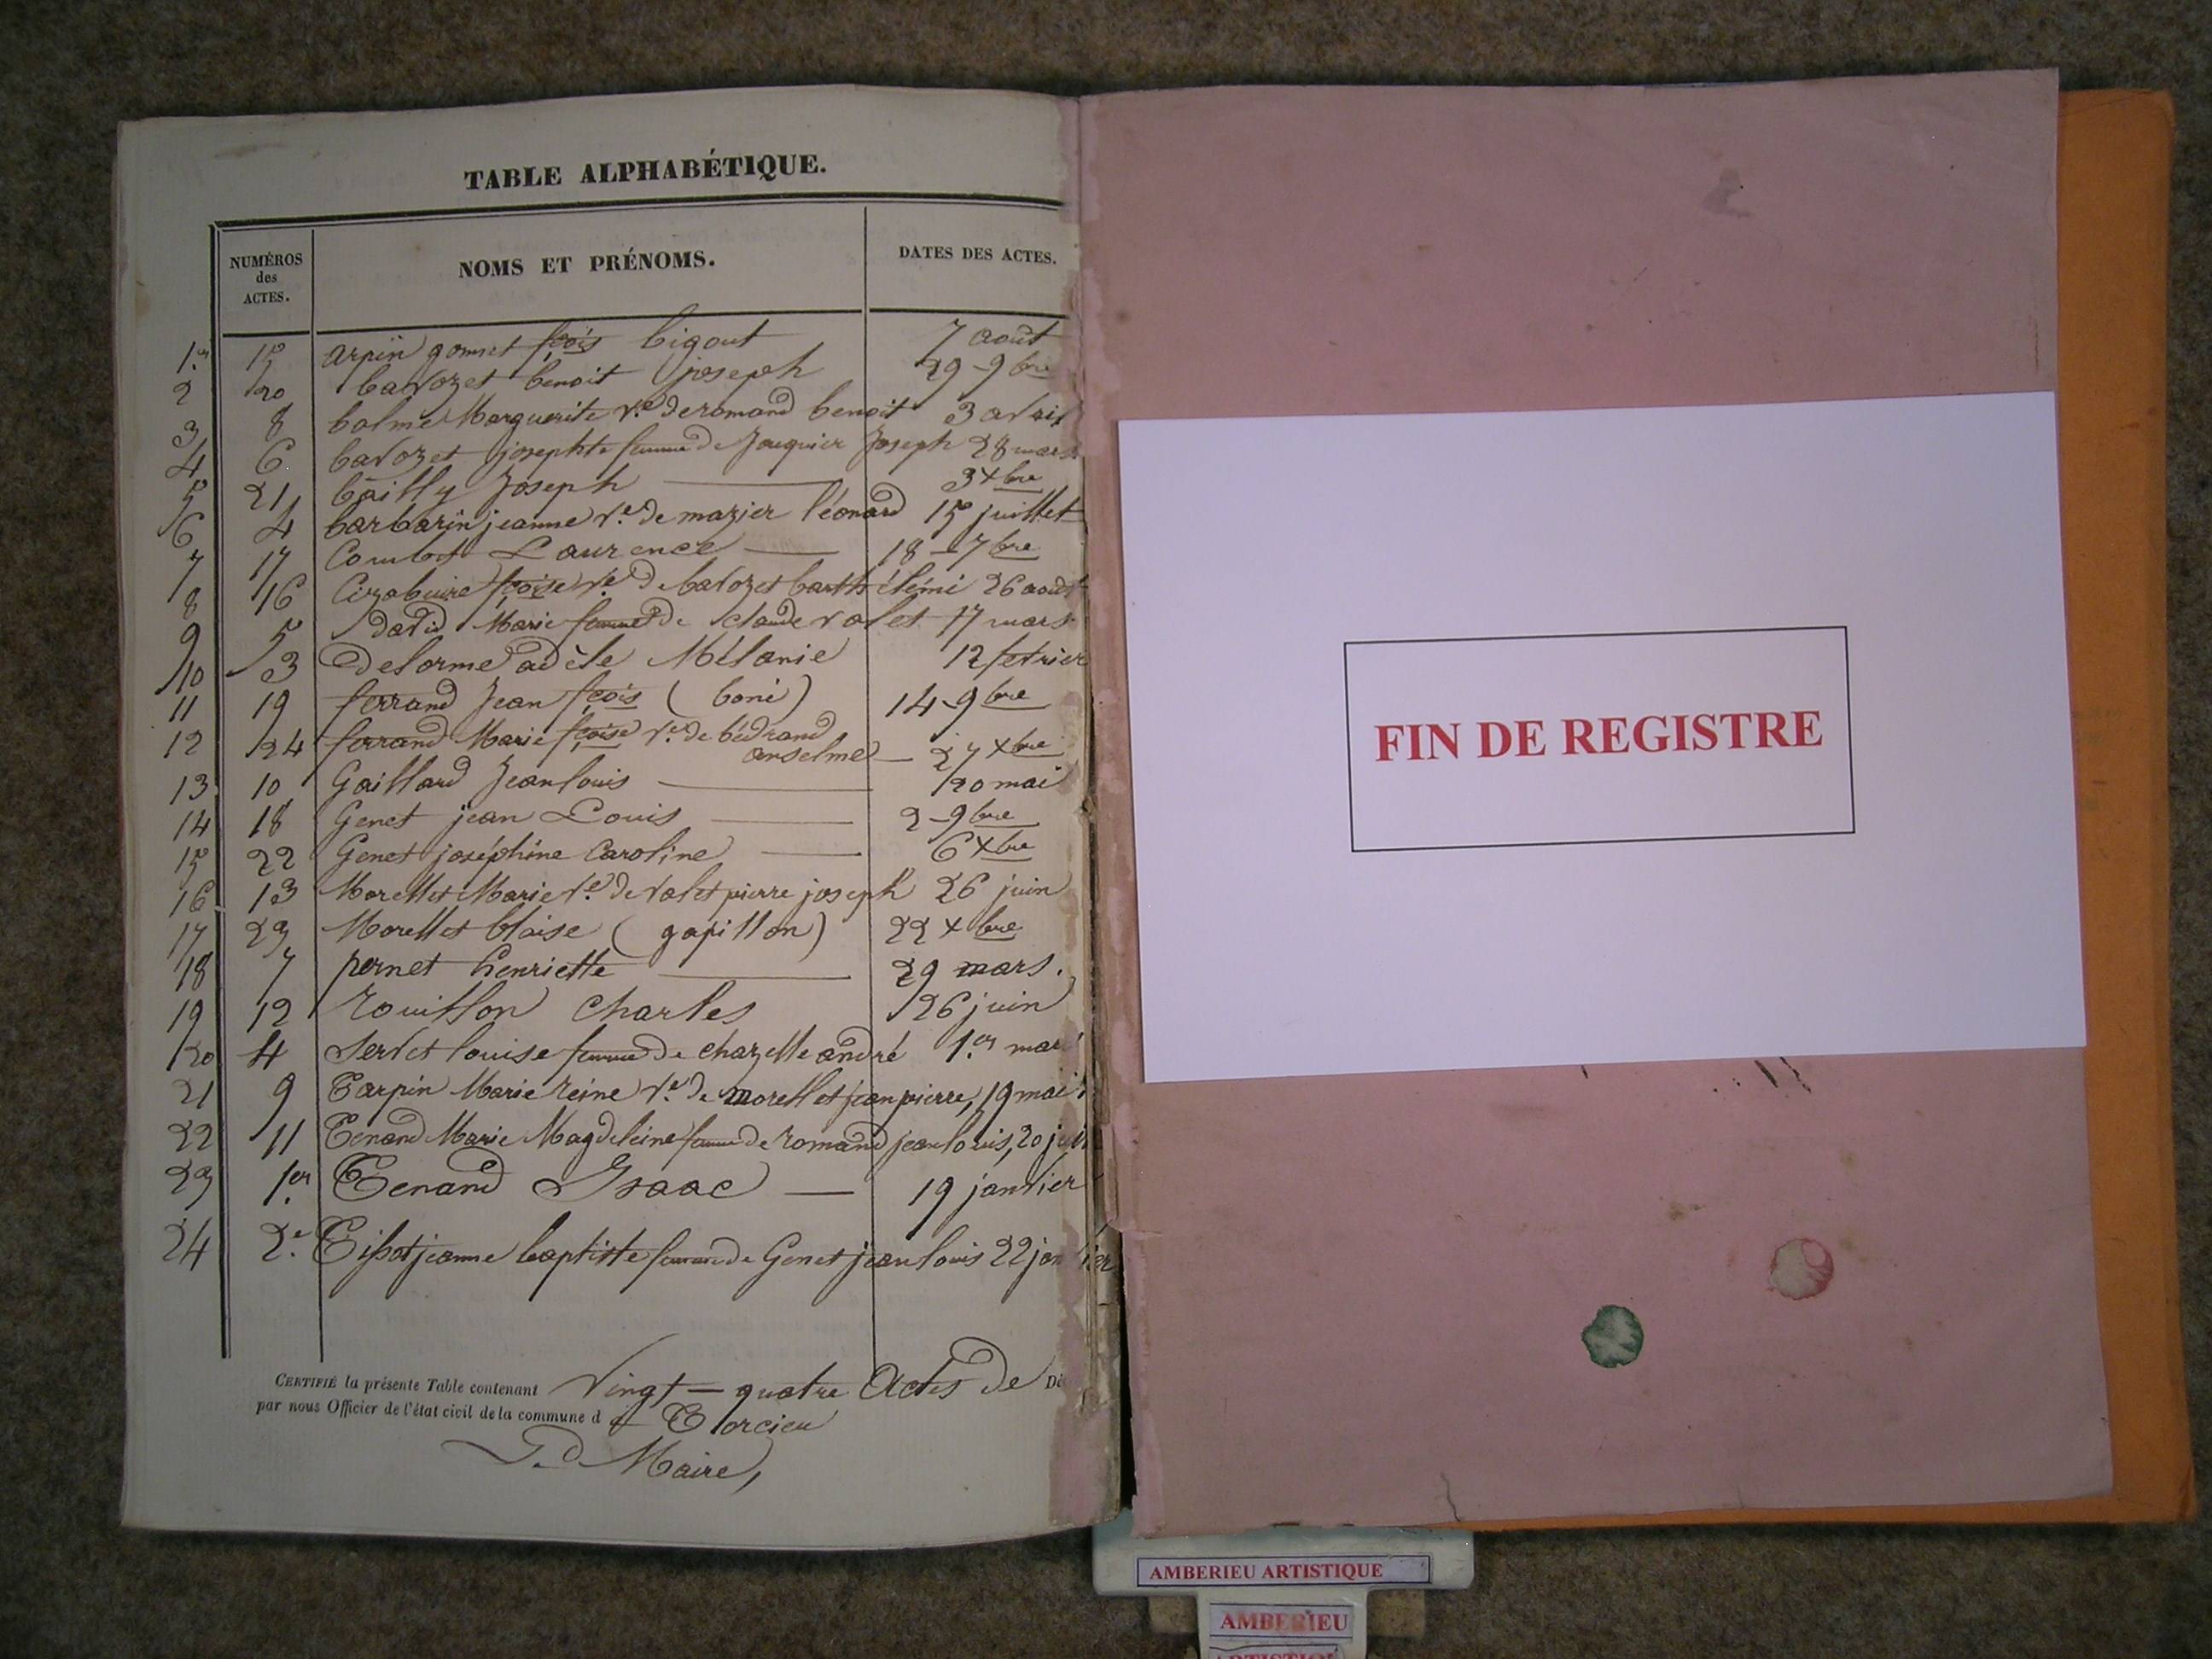 TABLE ALPHABÉTIQUE.
NUMÉROS des ACTES. NOMS ET PRÉNOMS. DATES DES ACTES.
1.er 15 arpin gonnet fçois bigout 7 août
2 20 bavozet benoit joseph 29 9bre
3 8 balme Marguerite Ve de romand benoit 3 avril
4 6 bavozet josephte femme de Jouquier Joseph 28 mars
5 21 bailly Joseph 3 Xbre
6 4 barbarin jeanne Ve de mazier léonard 15 juillet
7 17 Combet Laurence 18 7bre
8 16 fçoise Ve de bavozet barthélémi 26 août
9 5 david Marie femme de claude valet 17 mars
10 3 Delorme adèle Mélanie 12 fevrier
11 19 ferrand Jean fçois (boni) 14 9bre
12 24 ferrand Marie fçoise Ve de bédrand
anselme 27 Xbre
13 10 Gaillard Jean louis 20 mai
14 18 Genet jean Louis 2 9bre
15 22 Genet joséphine Caroline 6 Xbre
16 13 Morellet Marie Ve de Valet pierre joseph 26 juin
17 23 Morellet blaise (gapillon) 22 Xbre
18 7 pernet henriette 29 mars.
19 12 rouillon Charles 26 juin
20 4 Servet louise femme de chazelle andré 1.er mars
21 9 Tarpin Marie reine Ve de morellet jean pierre, 19 mai
22 11 Tenand Marie Magdeleine femme de romand jean louis, 20 juin
23 1er Tenand Isaac 19 janvier
24 2.e jeanne baptiste femme de Genet jean louis 22 janvier
CERTIFIÉ la présente Table contenant Vingt-quatre Actes de Dé
par nous Officier de l'état civil de la commune d e Torcieu
Le Maire,
FIN DE REGISTRE
AMBERIEU ARTISTIQUE
AMBERIEU
ARTISTIQUE